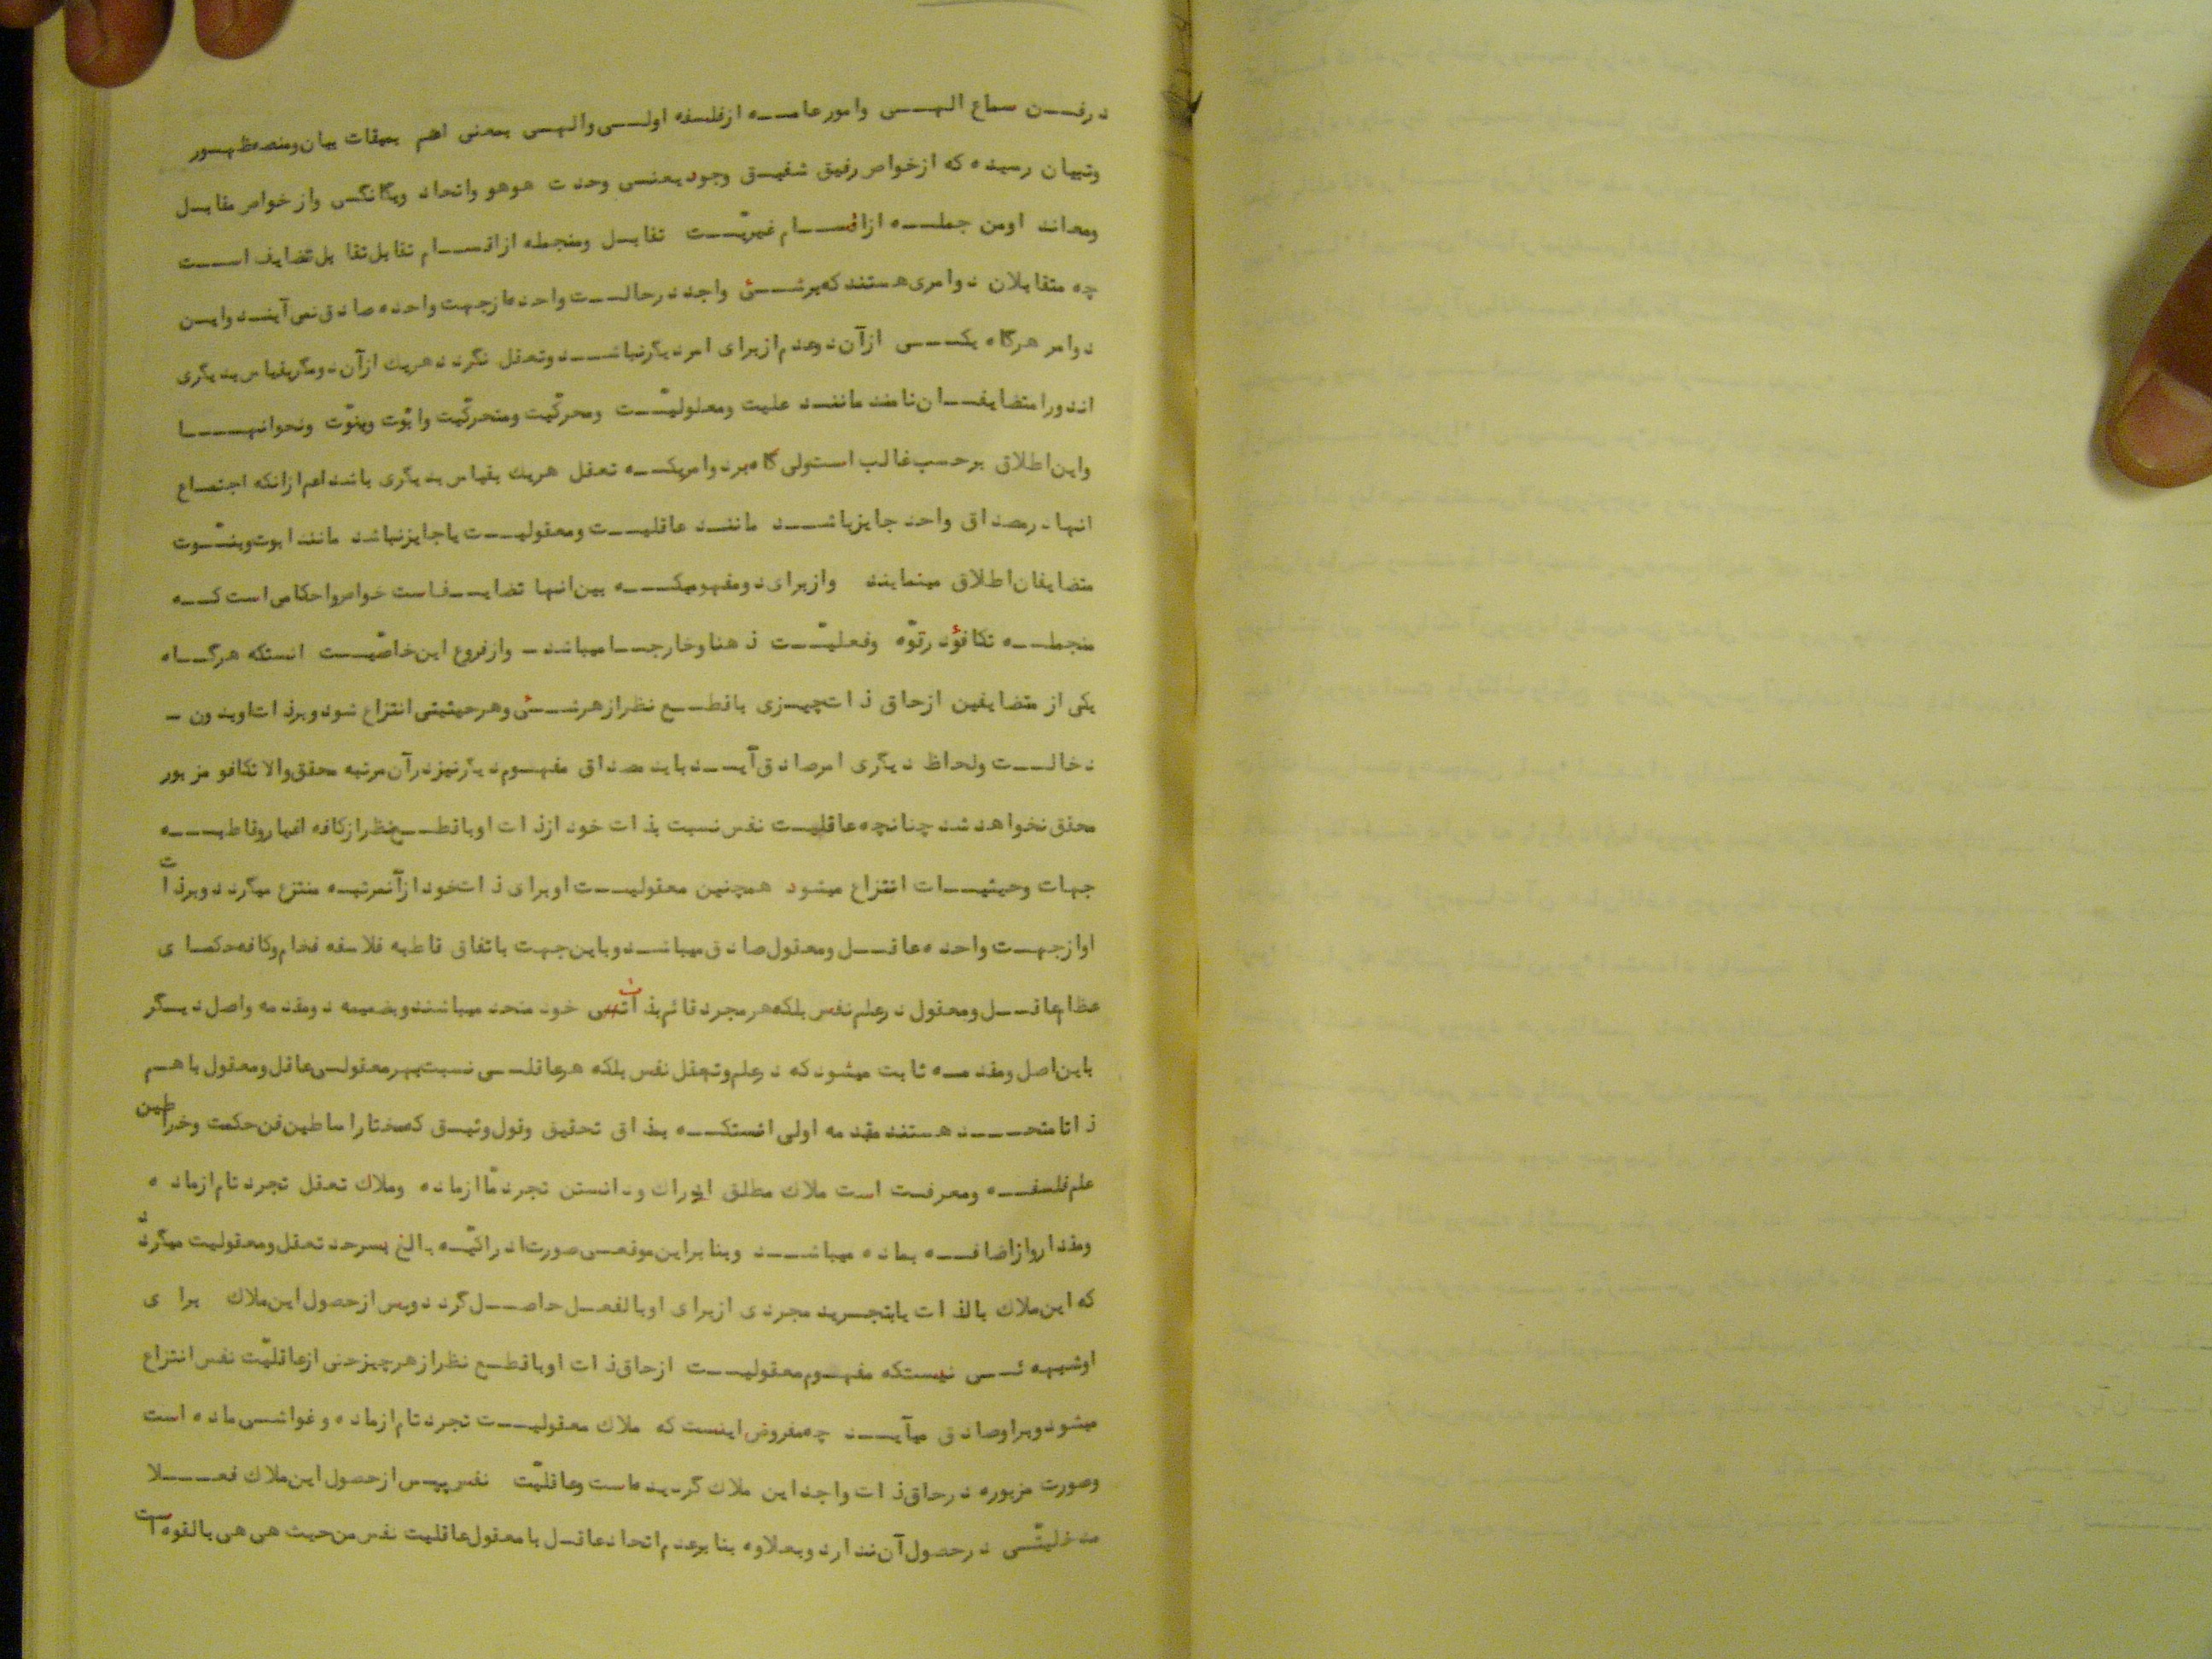 درفن سماع الهی وامورعامه ازفلسفه اولی والهی بمعنی اهم بمیقات بیان ومنصه ظهور
وتبیان رسیده که ازخواص رفیق شفیق وجود یعنی وحدت هوهو واتحاد ویگانگی وازخواص مقابل
ومعاند اومن جمله ازاقسام غیریّت تقابل ومنجمله ازاقسام تقابل تقابل تضایف است
چه متقابلان دوامری هستند که برشئ واحد درحالت واحده ازجهت واحده صادق نمی آیند واین
دوامر هرگاه یکی ازآن دوعدم ازبرای امر دیگرنباشد وتعقل نگردد هریك ازآن دومگر بقیاس بدیگری
اندورا متضایفان نامند مانند علیت ومعلولیّت ومحرکّیت ومتحرکّیت وابّوت وبنّوت ونحوانها
واین اطلاق برحسب غالب است ولی گاه بردوامریکه تعقل هریك بقیاس بدیگری باشد اعم ازانکه اجتماع
انها درمصداق واحد جایزباشد مانند عاقلیت ومعقولیت یاجایزنباشد مانند ابوت وبنّوت
متضایفان اطلاق مینمایند وازبرای دومفهومیکه بین انها تضایف است خواص واحکامی است که
منجمله تکافؤدرقوّه وفعلیّت ذهنا وخارجا میباشد - وازفروع این خاصّیت انستکه هرگاه
یکی از متضایفین ازحاق ذات چیزی باقطع نظرازهرشئ وهرحیثیتی انتزاع شود وبرذات اوبدون -
دخالت ولحاظ دیگری امرصادق آید باید مصداق مفهوم دیگرنیزدرآن مرتبه محقق والا تکافو مزبور
محقق نخواهد شد چنانچه عاقلیت نفس نسبت بذات خود ازذات اوباقطع نظرازکافه اغیاروقاطبه
جهات وحیثیات انتزاع میشود همچنین معقولیت اوبرای ذات خود ازآنمرتبه منتزع میگردد وبرذات
اوازجهت واحده عاقل ومعقول صادق میباشد وباین جهت باتفاق قاطبه فلاسفه فخام وکافه حکمای
عظام عاقل ومعقول درعلم نفس بلکه هرمجرد قائم بذات خود متحد میباشند وبضمیمه دومقدمه واصل دیگر
باین اصل ومقدمه ثابت میشود که درعلم وتعقل نفس بلکه هرعاقلی نسبت بهرمعقولی عاقل ومعقول باهم
ذاتا متحد هستند مقدمه اولی انستکه بمذاق تحقیق وقول وثیق که مختاراساطین فن حکمت وخراطین
علم فلسفه ومعرفت است ملاك مطلق ادراك ودانستن تجرد مّاازماده وملاك تعقل تجرد تام ازماده
ومقداروازاضافه بماده میباشد وبنابراین موقعی صورت ادراکیّه بالغ بسرحد تعقل ومعقولیت میگردد
که این ملاك بالذات یابتجرید مجردی ازبرای اوبالفعل حاصل گردد وپس ازحصول این ملاك برای
اوشبهه ئی نیستکه مفهوم معقولیت ازحاق ذات اوباقطع نظرازهرچیزحتی ازعاقلیّت نفس انتزاع
میشود وبراوصادق میآید چه مفروض اینست که ملاك معقولیت تجرد تام ازماده وغواشی ماده است
وصورت مزبوره درحاق ذات واجد این ملاك گردیده است وعاقلیّت نفس پس ازحصول این ملاك فعلا
مدخلیّتی درحصول آن ندارد وبعلاوه بنابرعدم اتحاد عاقل بامعقول عاقلیت نفس من حیث هی هی بالقوه است